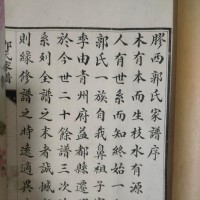 膠西郭氏家譜序
木有本而生枝水有源
人有世系而知終始一
郭氏一族自我鼻祖子
季由青州府益都縣遷
於今世二十餘譜三次
系列全譜之末者誠撼
則續修譜之時遠適異